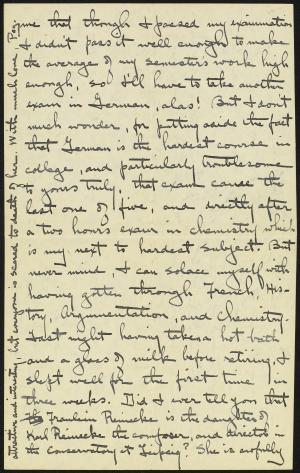 me that though I passed my examination
I didn't pass it well enough to make
the average of my semester's work high
enough, so I'll have to take another
exam in German, alas! But I don't
much wonder, for putting aside the fact
that German is the hardest course in
college, and particularly troublesome
to yours truly, that exam came the
last one of five, and directly after
a two hours exam in chemistry which
is my next to hardest subject. But
never mind, I can solace myself with
having gotten through French, His-
tory, Argumentation, and Chemistry.
Last night having taken a hot bath
and a glass of milk before retiring, I
slept well for the first time in
three weeks. Did I ever tell you that
Fraulein Reinecke is the daughter of
Karl Reinecke the composer, and director in
the Conservatory at Leipzig? She is awfully
attractive and interesting, but everyone is scared to death of her. With much love